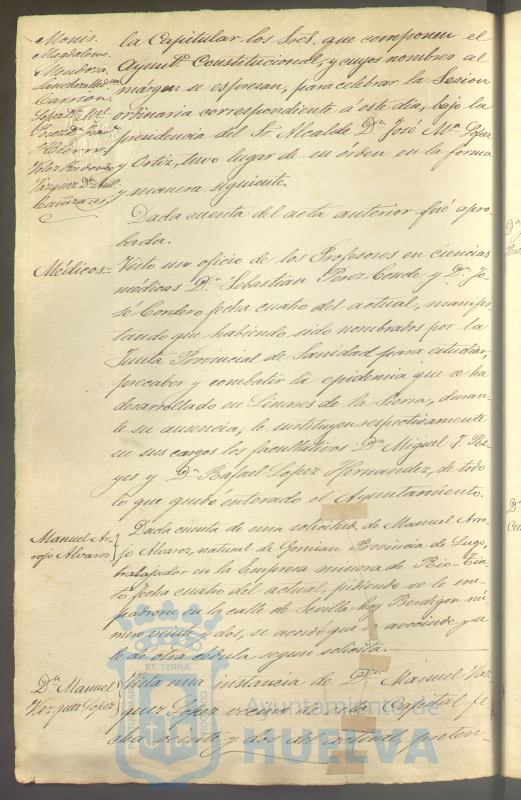 Monis.
Magdaleno.
Mendoza.
Carrión.
López Dn. Ml.
Pérez Dn.
Hierro
Vázquez Dn.
Cañizares
la Capitular los Sres. que componen el
Ayuntº. Constitucional, y cuyos nombres al
márgen se espresan, para celebrar la Sesion
ordinaria correspondiente á este dia, bajo la
presidencia del Sr. Alcalde Dn. José Mª. López
y Ortiz, tuvo lugar de su órden en la forma
y manera siguiente.
Dada cuenta del acta anterior fué apro-
bada.
Médicos=
Visto un oficio de los Profesores en ciencias
médicas Dn. Sebastian Perez Conde y Dn. Jo-
sé Cordero fecha cuatro del actual, manifes-
tando que habiendo sido nombrados por la
Junta Provincial de Sanidad para estudiar,
precaber y combatir la epidemia que se ha
desarrollado en Linares de la Sierra, duran-
te su ausencia, le sustituyen respectivamente
en sus cargos los facultativos Dn. Miguel J. Re-
yes y Dn. Rafael López Hernandez, de todo
lo que quedó enterado el Ayuntamiento.
Manuel Ar-
rojo Alvarez
Dada cuenta de una solicitud de Manuel Arro-
jo Alvarez, natural de Provincia de Lugo,
trabajador en la Empresa minera de Rio-Tin-
to, fecha cuatro del actual, pidiendo se le em-
padrone en la calle de Sevilla hoy Berdigon nú-
mero veinte y dos, se acordó que se avecinde y se
le dé otra cédula segun solicita.
Dn. Manuel
Vazquez López
Vista una instancia de Dn. Manuel Vaz-
quez López vecino de esta Capital fe-
cha veinte y dos del preten-
ET TERRÆ
Ayuntamiento de
HUELVA